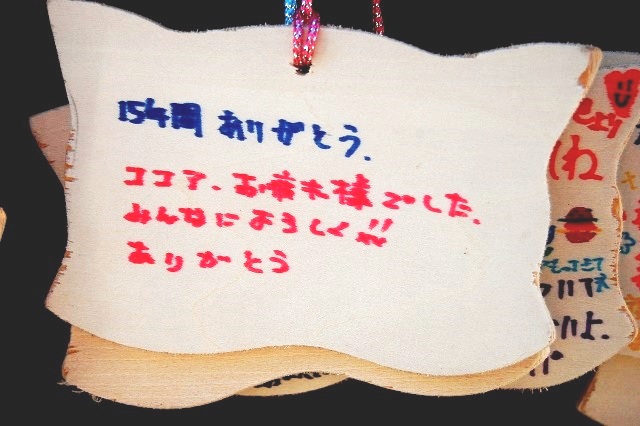 15年間 ありがとう.
ココア、お疲れ様でした.
みんなによろしく!!
ありがとう
ね